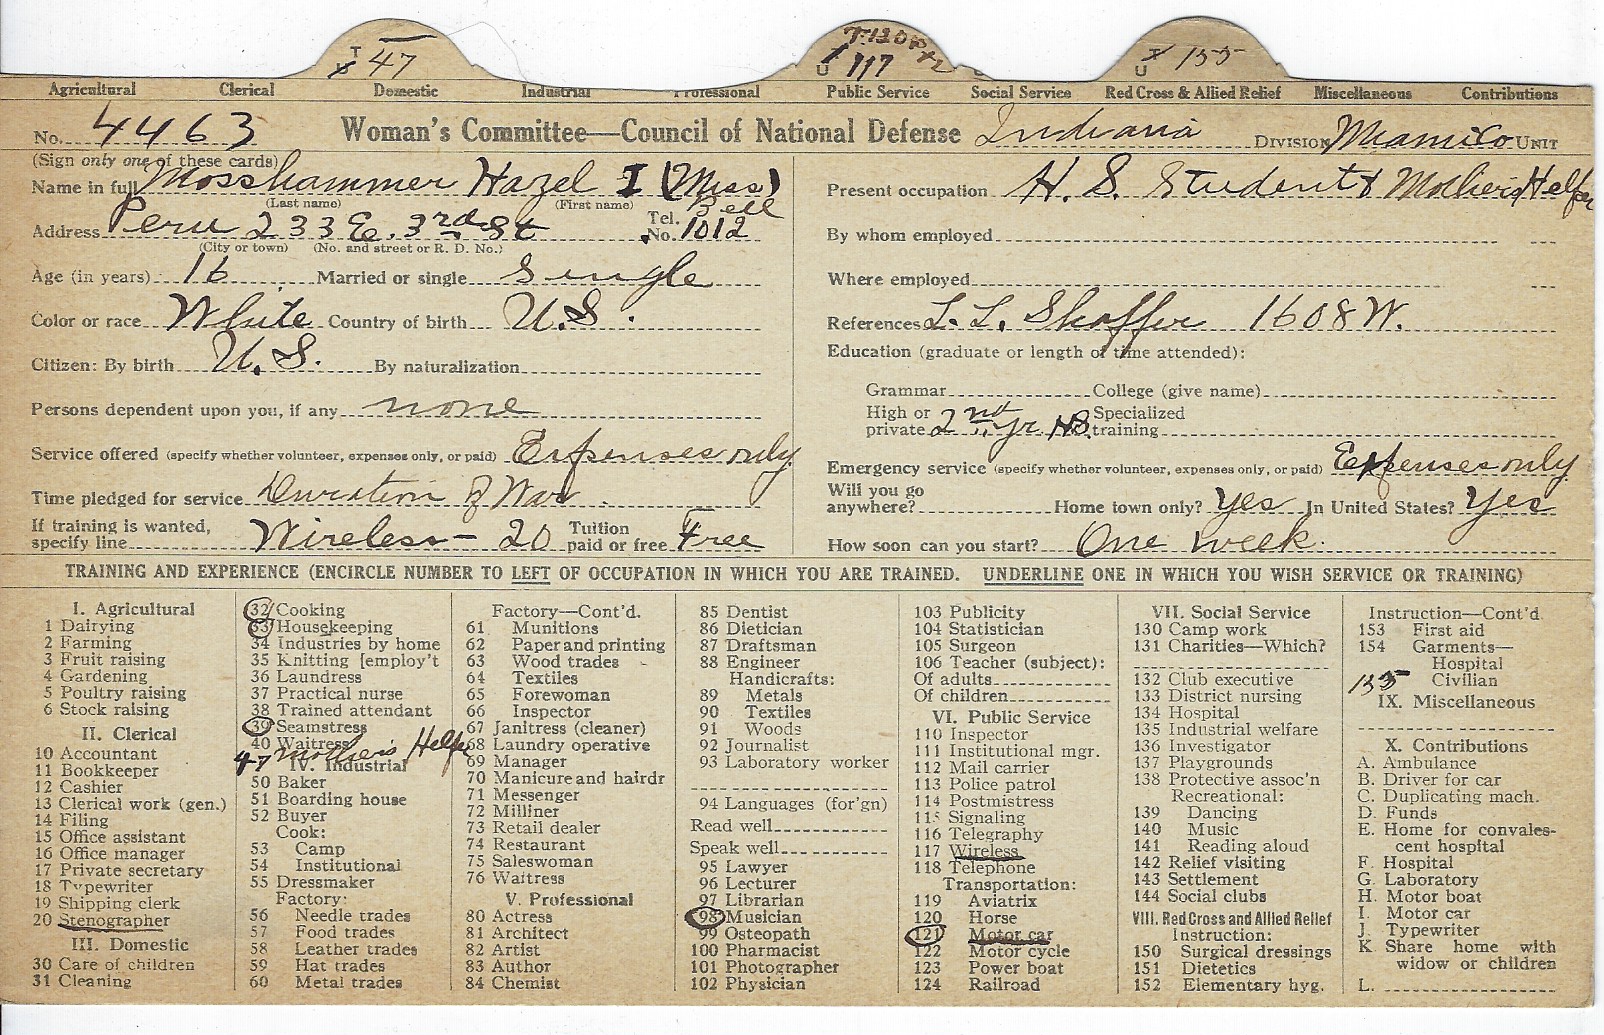 T 47
T-120
U 117
U 155
Agricultural Clerical Domestic Industrial Professional Public Service Social Service Red Cross & Allied Relief Miscellaneous Contributions
No. 4463 Woman's Committee—Council of National Defense Indiana DIVISION Miami Co UNIT
(Sign only one of these cards)
Name in full Mosshammer Hazel I (Miss)
(Last name) (First name)
Address Peru 233 E. 3rd St Tel. No. Bell 1012
(City or town) (No. and street or R. D. No.)
Age (in years) 16 Married or single Single
Color or race White Country of birth U.S.
Citizen: By birth U.S. By naturalization
Persons dependent upon you, if any none
Service offered (specify whether volunteer, expenses only, or paid) Expenses only
Time pledged for service Duration of War
If training is wanted, specify line Wireless - 20 Tuition paid or free Free
Present occupation H. S. Student & Mothers Helper
By whom employed
Where employed
References L. L. Shaffer 1608 W.
Education (graduate or length of time attended):
Grammar College (give name)
High or private 2nd yr. HS. Specialized training
Emergency service (specify whether volunteer, expenses only, or paid) Expenses only
Will you go anywhere? Home town only? Yes In United States? Yes
How soon can you start? One week.
TRAINING AND EXPERIENCE (ENCIRCLE NUMBER TO LEFT OF OCCUPATION IN WHICH YOU ARE TRAINED. UNDERLINE ONE IN WHICH YOU WISH SERVICE OR TRAINING)
I. Agricultural
1 Dairying
2 Farming
3 Fruit raising
4 Gardening
5 Poultry raising
6 Stock raising
II. Clerical
10 Accountant
11 Bookkeeper
12 Cashier
13 Clerical work (gen.)
14 Filing
15 Office assistant
16 Office manager
17 Private secretary
18 Typewriter
19 Shipping clerk
20 Stenographer
III. Domestic
30 Care of children
31 Cleaning
32 Cooking
33 Housekeeping
34 Industries by home
35 Knitting [employ't
36 Laundress
37 Practical nurse
38 Trained attendant
39 Seamstress
40 Waitress
47 Mother's Helper
IV. Industrial
50 Baker
51 Boarding house
52 Buyer
Cook:
53 Camp
54 Institutional
55 Dressmaker
Factory:
56 Needle trades
57 Food trades
58 Leather trades
59 Hat trades
60 Metal trades
Factory—Cont'd.
61 Munitions
62 Paper and printing
63 Wood trades
64 Textiles
65 Forewoman
66 Inspector
67 Janitress (cleaner)
68 Laundry operative
69 Manager
70 Manicure and hairdr
71 Messenger
72 Milliner
73 Retail dealer
74 Restaurant
75 Saleswoman
76 Waitress
V. Professional
80 Actress
81 Architect
82 Artist
83 Author
84 Chemist
85 Dentist
86 Dietician
87 Draftsman
88 Engineer
Handicrafts:
89 Metals
90 Textiles
91 Woods
92 Journalist
93 Laboratory worker
94 Languages (for'gn)
Read well
Speak well
95 Lawyer
96 Lecturer
97 Librarian
98 Musician
99 Osteopath
100 Pharmacist
101 Photographer
102 Physician
103 Publicity
104 Statistician
105 Surgeon
106 Teacher (subject):
Of adults
Of children
VI. Public Service
110 Inspector
111 Institutional mgr.
112 Mail carrier
113 Police patrol
114 Postmistress
115 Signaling
116 Telegraphy
117 Wireless
118 Telephone
Transportation:
119 Aviatrix
120 Horse
121 Motor car
122 Motor cycle
123 Power boat
124 Railroad
VII. Social Service
130 Camp work
131 Charities—Which?
132 Club executive
133 District nursing
134 Hospital
135 Industrial welfare
136 Investigator
137 Playgrounds
138 Protective assoc'n
Recreational:
139 Dancing
140 Music
141 Reading aloud
142 Relief visiting
143 Settlement
144 Social clubs
VIII. Red Cross and Allied Relief
Instruction:
150 Surgical dressings
151 Dietetics
152 Elementary hyg.
Instruction—Cont'd.
153 First aid
154 Garments—
Hospital
155 Civilian
IX. Miscellaneous
X. Contributions
A. Ambulance
B. Driver for car
C. Duplicating mach.
D. Funds
E. Home for convales-
cent hospital
F. Hospital
G. Laboratory
H. Motor boat
I. Motor car
J. Typewriter
K. Share home with
widow or children
L.